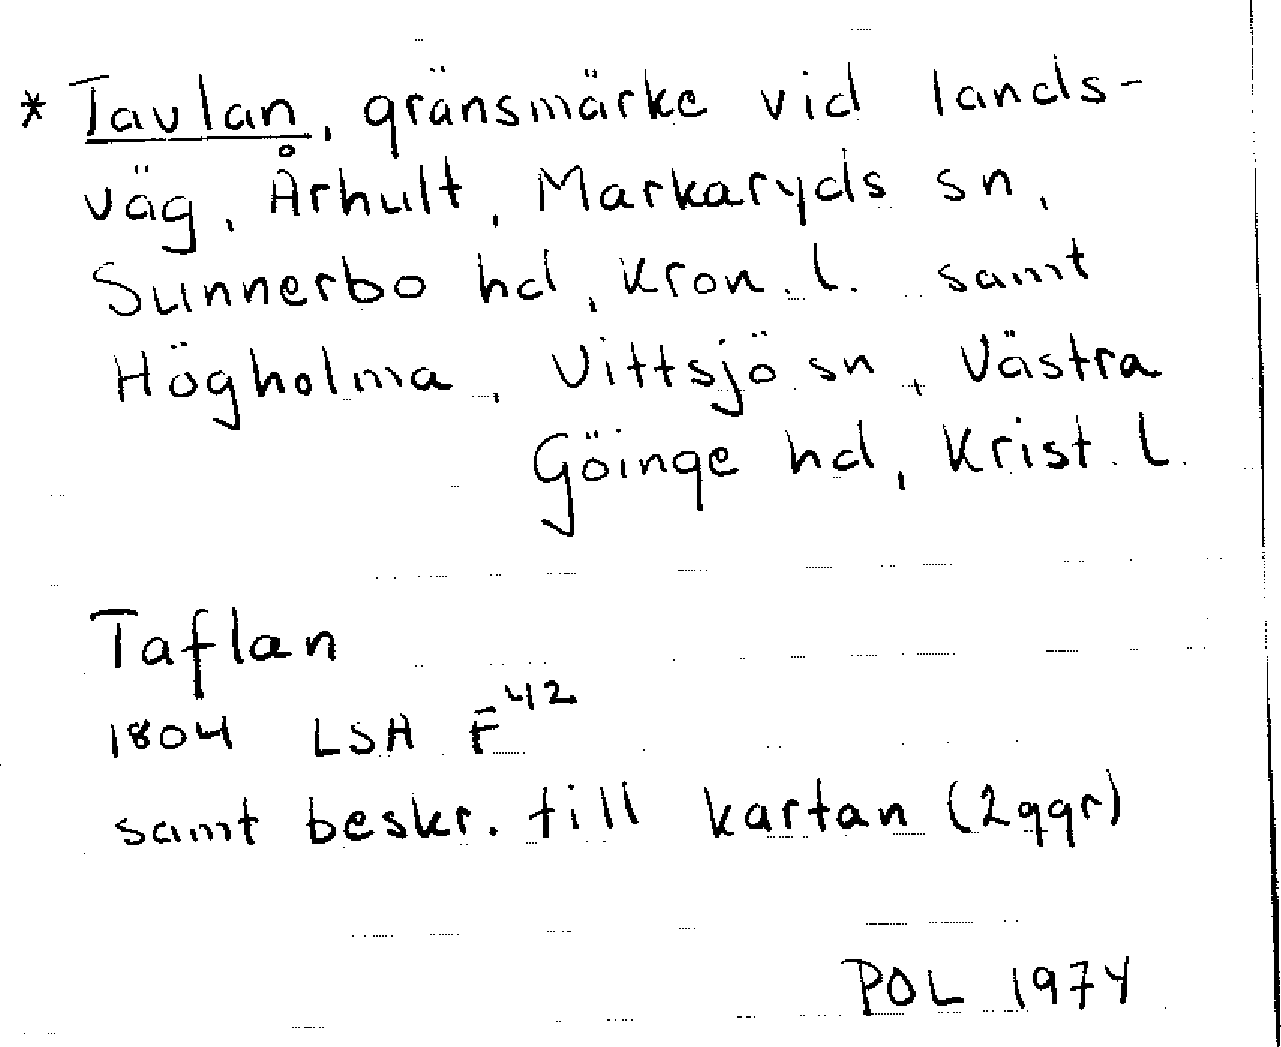 * Tavlan, gränsmärke vid lands-
väg, Århult, Markaryds sn,
Sunnerbo hd, Kron. l. samt
Högholma, Vittsjö sn, Västra
Göinge hd, Krist. l.
Taflan
1804 LSA F 42
samt beskr. till kartan (2ggr)
POL 1974